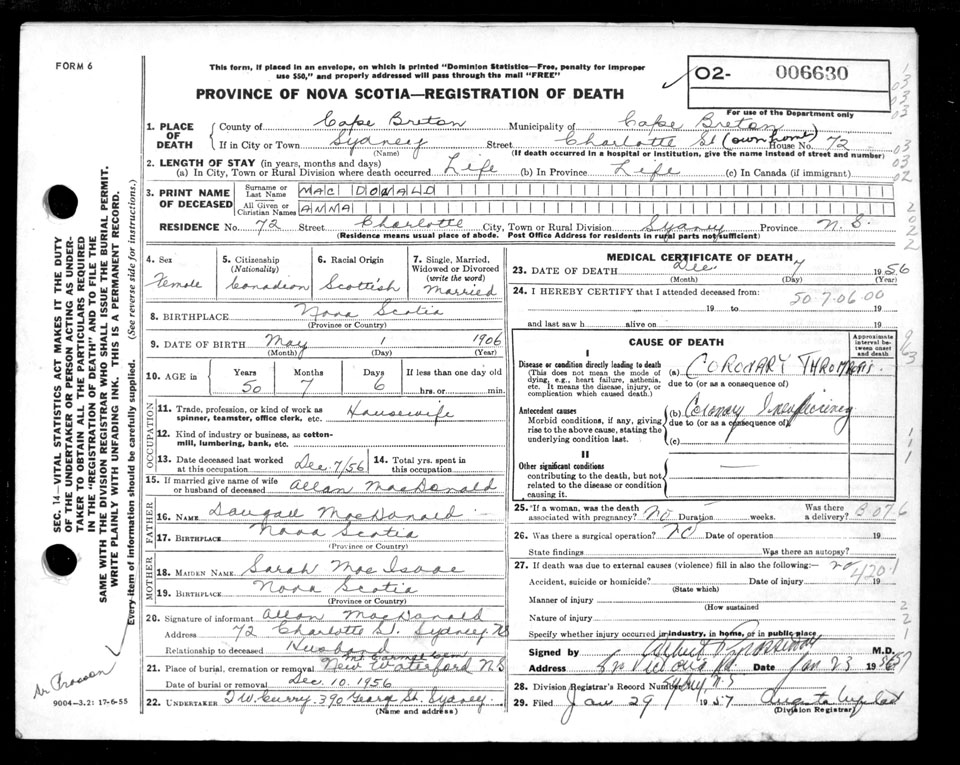 FORM 6
This form, if placed in an envelope, on which is printed "Dominion Statistics—Free, penalty for improper
use $50," and properly addressed will pass through the mail "FREE"
O2- 006630
For use of the Department only
PROVINCE OF NOVA SCOTIA—REGISTRATION OF DEATH
SEC. 14—VITAL STATISTICS ACT MAKES IT THE DUTY
OF THE UNDERTAKER OR PERSON ACTING AS UNDER-
TAKER TO OBTAIN ALL THE PARTICULARS REQUIRED
IN THE "REGISTRATION OF DEATH" AND TO FILE THE
SAME WITH THE DIVISION REGISTRAR WHO SHALL ISSUE THE BURIAL PERMIT.
WRITE PLAINLY WITH UNFADING INK. THIS IS A PERMANENT RECORD.
Every item of information should be carefully supplied. (See reverse side for instructions.)
1. PLACE OF DEATH { County of Cape Breton Municipality of Cape Breton
If in City or Town Sydney Street Charlotte St (own home) House No. 72
(Name) (If death occurred in a hospital or institution, give the name instead of street and number)
2. LENGTH OF STAY (in years, months and days)
(a) In City, Town or Rural Division where death occurred Life (b) In Province Life (c) In Canada (if immigrant)
3. PRINT NAME OF DECEASED { Surname or Last Name MAC DONALD
All Given or Christian Names ANNA
RESIDENCE No. 72 Street Charlotte City, Town or Rural Division Sydney Province N.S.
(Residence means usual place of abode. Post Office Address for residents in rural parts not sufficient)
4. Sex Female
5. Citizenship (Nationality) Canadian
6. Racial Origin Scottish
7. Single, Married, Widowed or Divorced (write the word) Married
8. BIRTHPLACE Nova Scotia
(Province or Country)
9. DATE OF BIRTH May 1 1906
(Month) (Day) (Year)
10. AGE in Years 50 Months 7 Days 6 If less than one day old hrs. or min.
OCCUPATION
11. Trade, profession, or kind of work as spinner, teamster, office clerk, etc. Housewife
12. Kind of industry or business, as cotton-mill, lumbering, bank, etc.
13. Date deceased last worked at this occupation Dec. 7/56 14. Total yrs. spent in this occupation
15. If married give name of wife or husband of deceased Allan MacDonald
FATHER
16. NAME Dougall MacDonald
17. BIRTHPLACE Nova Scotia
(Province or Country)
MOTHER
18. MAIDEN NAME Sarah MacIsaac
19. BIRTHPLACE Nova Scotia
(Province or Country)
20. Signature of informant Allan MacDonald
Address 72 Charlotte St. Sydney NS
Relationship to deceased Husband
21. Place of burial, cremation or removal Mt Carmel Cem New Waterford N.S
Date of burial or removal Dec. 10. 1956
22. UNDERTAKER T W Curry. 390 George St. Sydney
(Name and address)
MEDICAL CERTIFICATE OF DEATH
23. DATE OF DEATH Dec. 7 1956
(Month) (Day) (Year)
24. I HEREBY CERTIFY that I attended deceased from:
50.7.06.00
19 to 19
and last saw h alive on 19
CAUSE OF DEATH
Approximate interval between onset and death
I
Disease or condition directly leading to death (a) CORONARY THROMBOSIS
(This does not mean the mode of dying, e.g., heart failure, asthenia, etc. It means the disease, injury, or complication which caused death.)
due to (or as a consequence of)
Antecedent causes (b) Coronary Insufficiency
Morbid conditions, if any, giving rise to the above cause, stating the underlying condition last.
due to (or as a consequence of)
(c)
II
Other significant conditions
contributing to the death, but not related to the disease or condition causing it.
25. If a woman, was the death associated with pregnancy? No Duration weeks. Was there a delivery?
26. Was there a surgical operation? No Date of operation 19
State findings Was there an autopsy?
27. If death was due to external causes (violence) fill in also the following:— no
420.1
Accident, suicide or homicide? Date of injury 19
(State which)
Manner of injury
(How sustained
Nature of injury
Specify whether injury occurred in industry, in home, or in public place
Signed by M.D.
Address Date Jan 23 1957
28. Division Registrar's Record Number
Sydney, N.S
29. Filed Jan 29 1957
(Division Registrar)
9004—3.2: 17-6-55